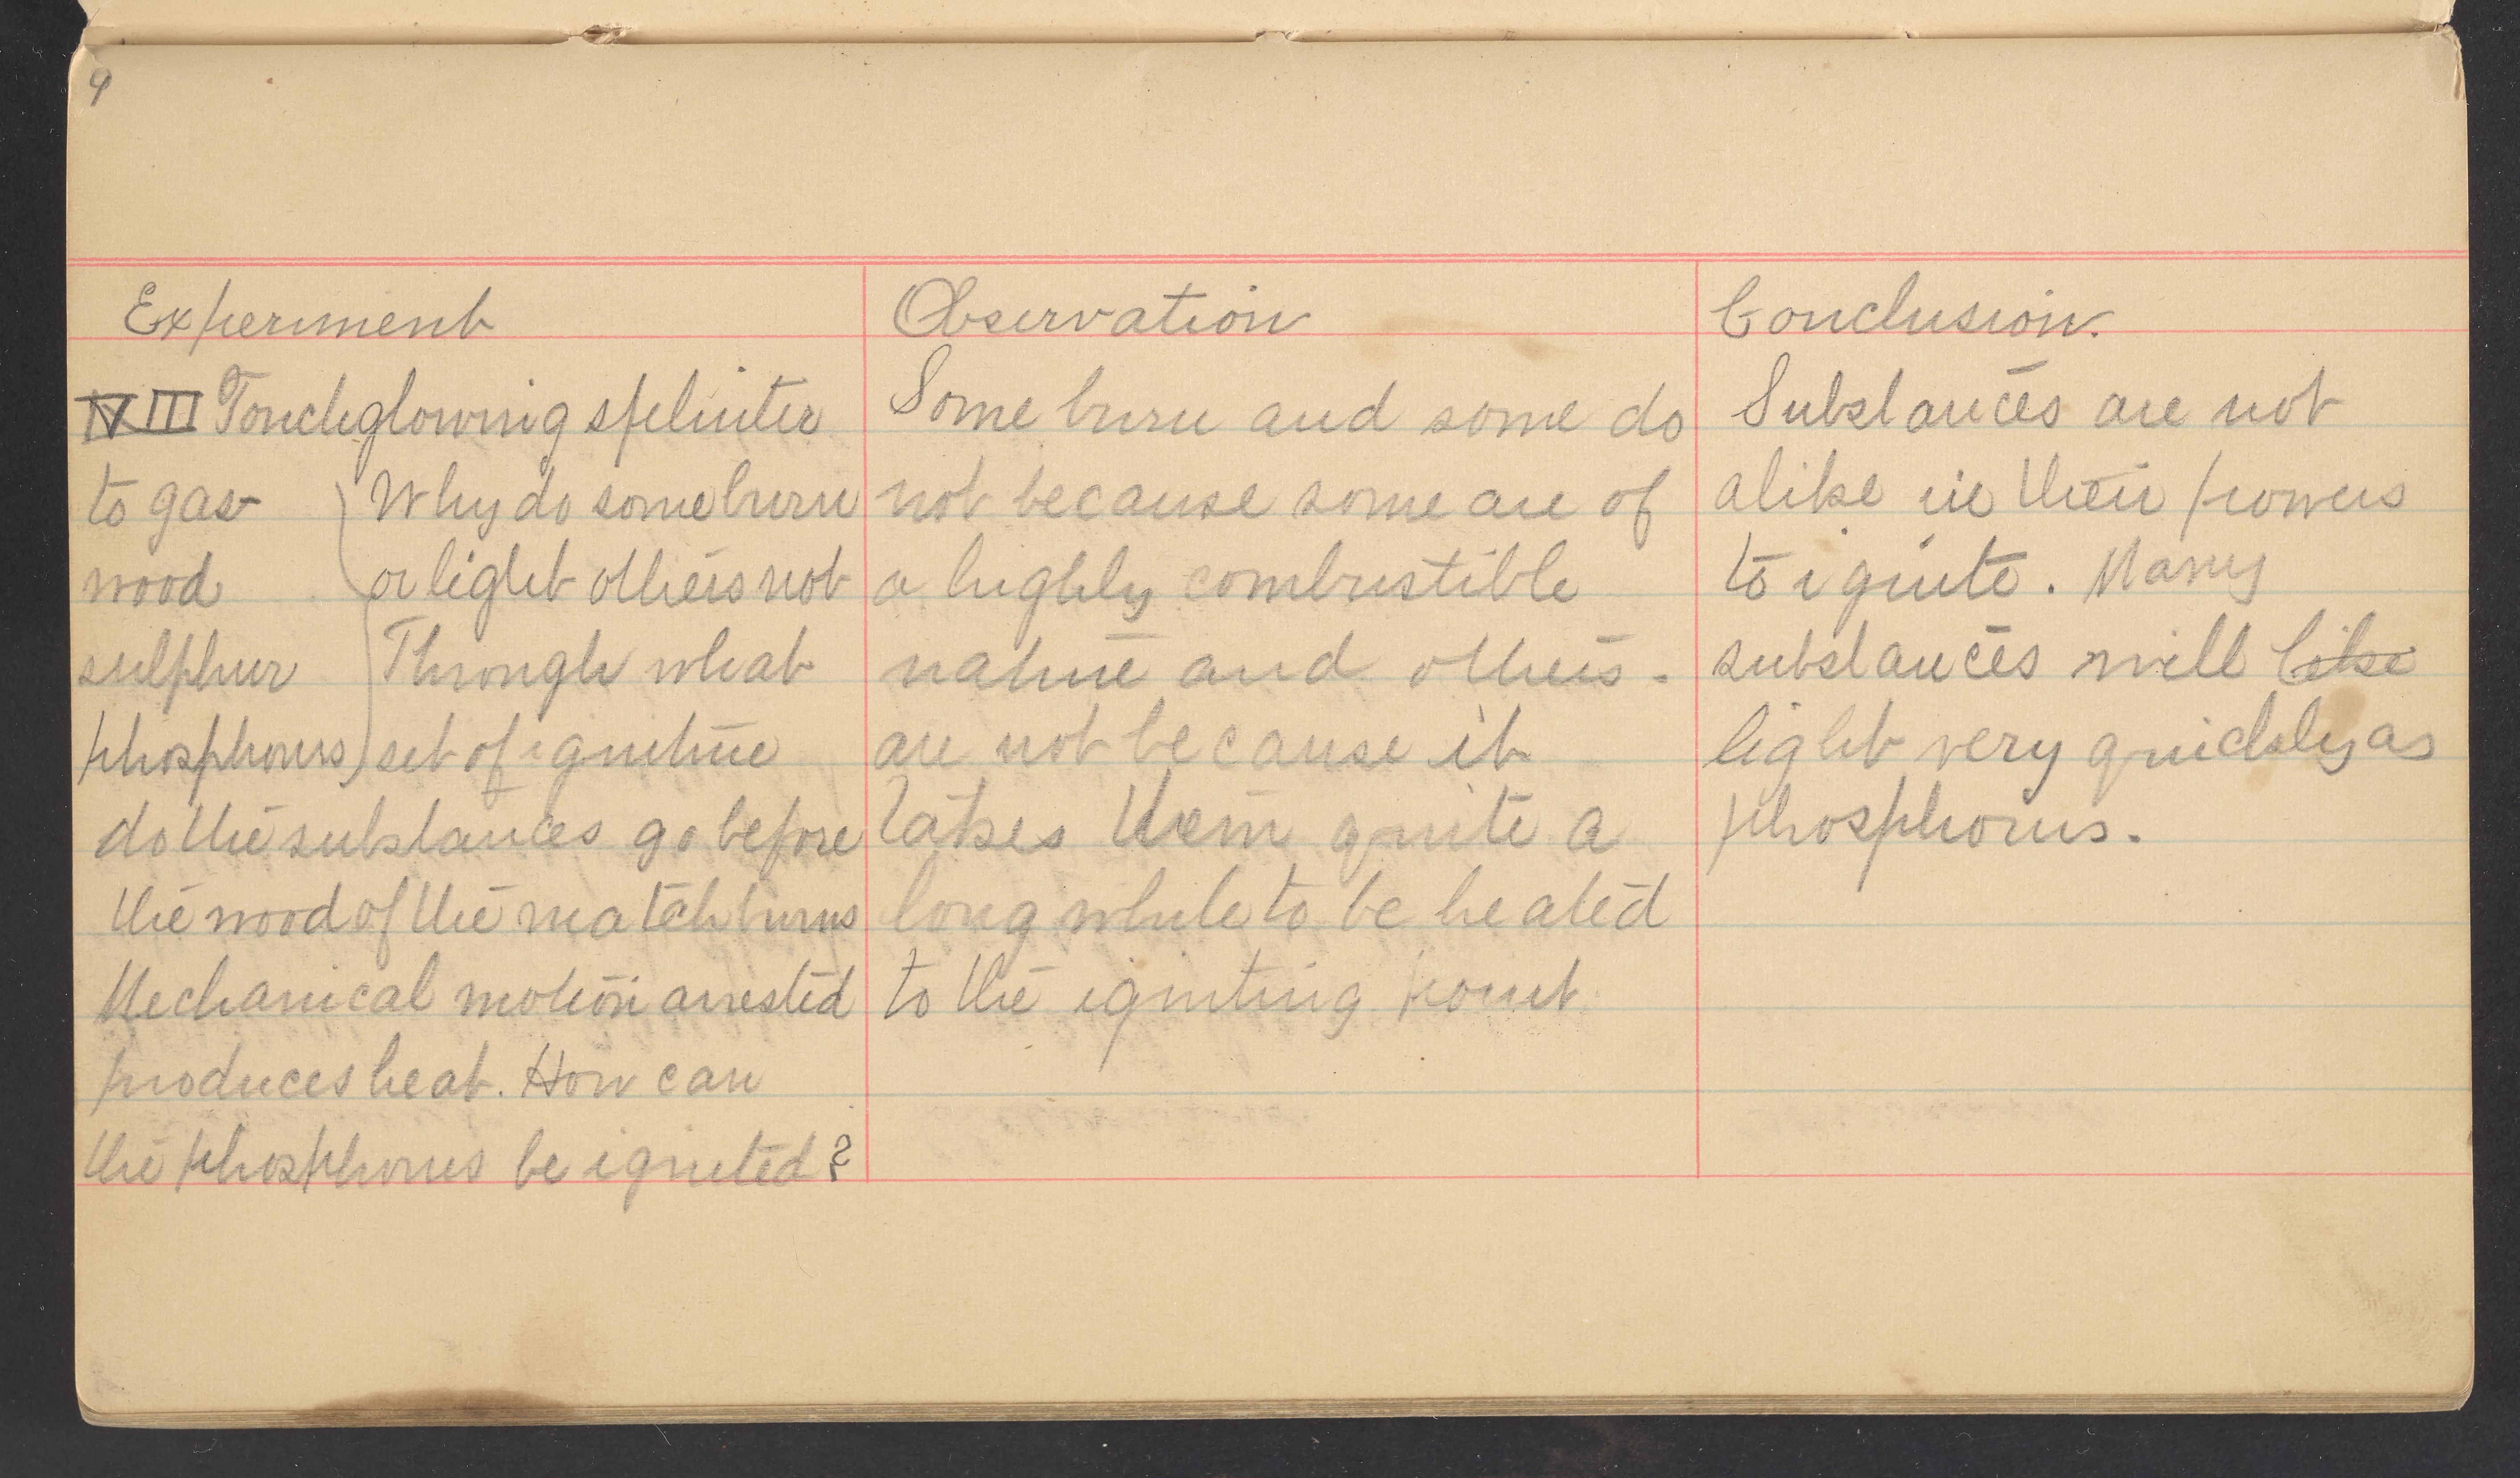 9
Experiment
IVIII Touch glowing splinter
to gas
wood
sulphur
phosphorus
Why do some burn
or light others not
Through what
set of ignitine
do the substances go before
the wood of the match burns
Mechanical motion arrested
produces heat. How can
the phosphorus be ignited?
Observation
Some burn and some do
not because some are of
a highly combustible
nature and others.
are not because it
takes them quite a
long while to be heated
to the igniting point
Conclusion.
Substances are not
alike in their powers
to ignite. Many
substances will like
light very quickly as
phosphorus.